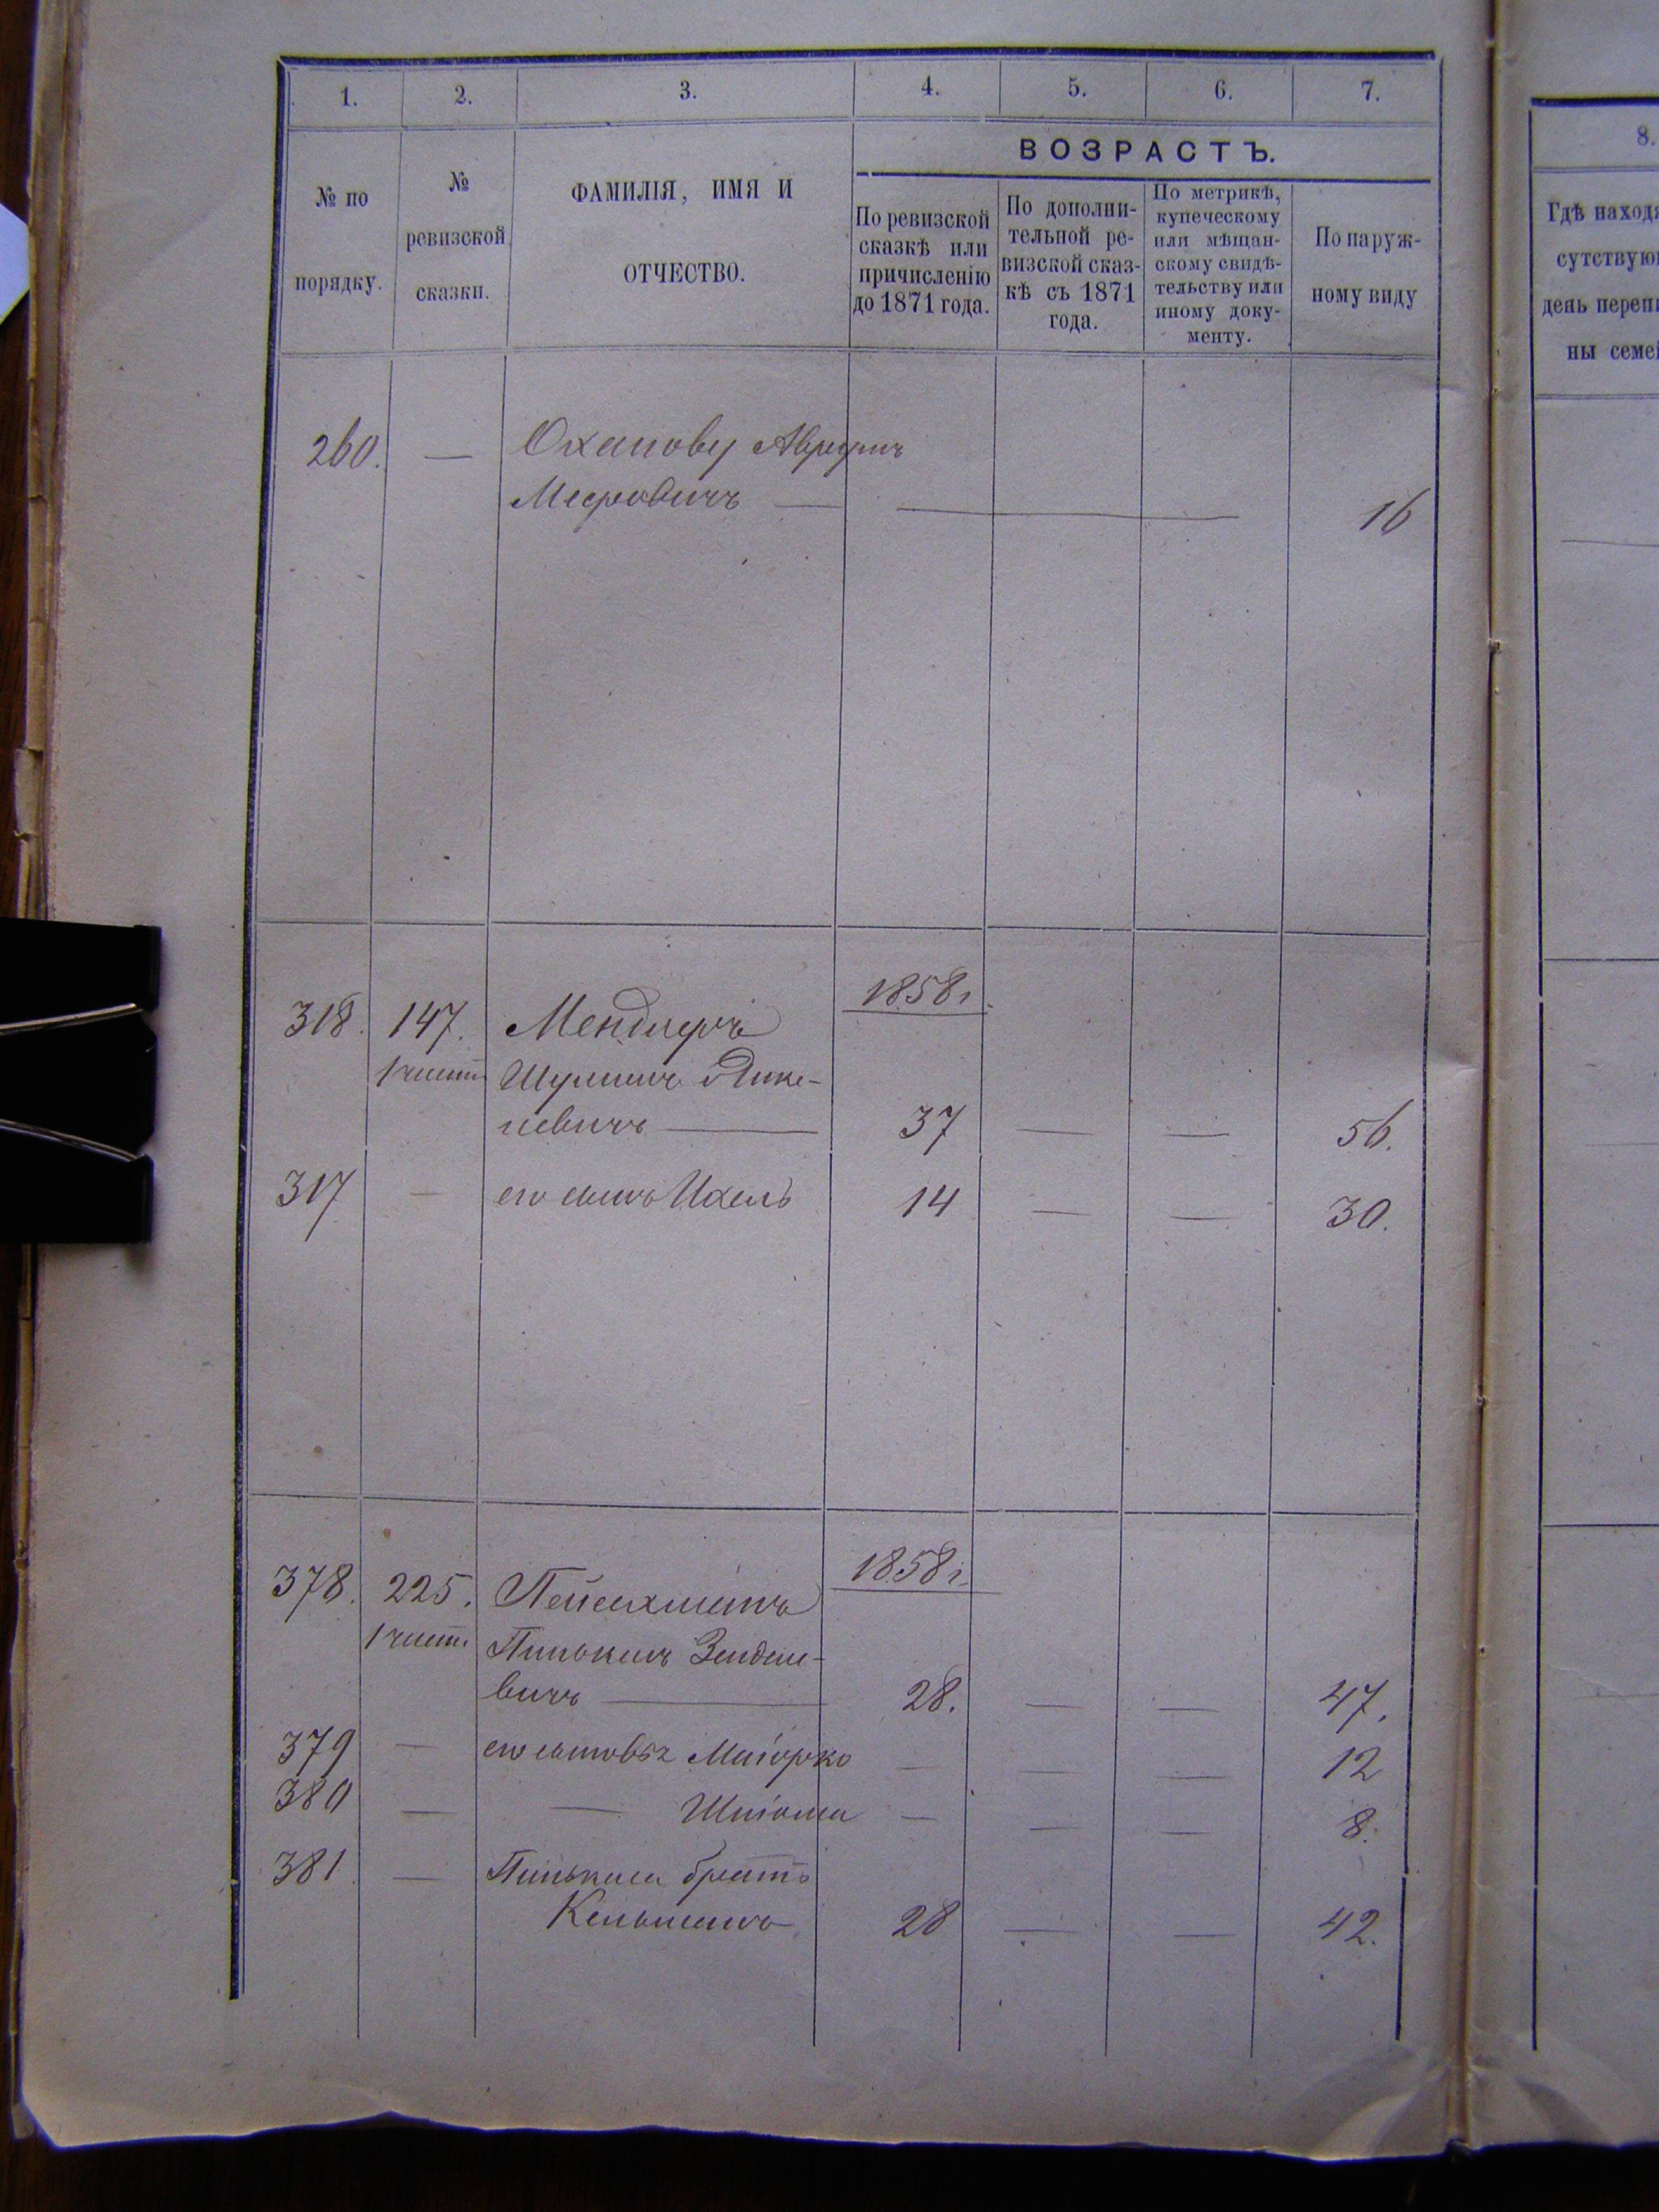 1. 2. 3. 4. 5. 6. 7.
ВОЗРАСТЪ.
№ по
порядку.
№
ревизской
сказки.
ФАМИЛІЯ, ИМЯ И
ОТЧЕСТВО.
По ревизской
сказкѣ или
причисленію
до 1871 года.
По дополни-
тельной ре-
визской сказ-
кѣ съ 1871
года.
По метрикѣ,
купеческому
или мѣщан-
скому свидѣ-
тельству или
иному доку-
менту.
По наруж-
ному виду
260. —
— 16
1858 г.
318. 147. Мендлеръ
1 части Шулимъ
37 — — 56.
317 — его сынъ Ихель 14 — — 30.
1858 г.
378. 225. Пейсахметъ
1 части Пинькасъ Зейдле-
вичъ — 28. — — 47.
379 — его сыновья Маіорко — — — 12
380 — — Шлiома — — — 8.
381 — Пинькаса братъ
Кельманъ 28 — — 42.
8.
Гдѣ наход
сутствую
день переп
ны семе